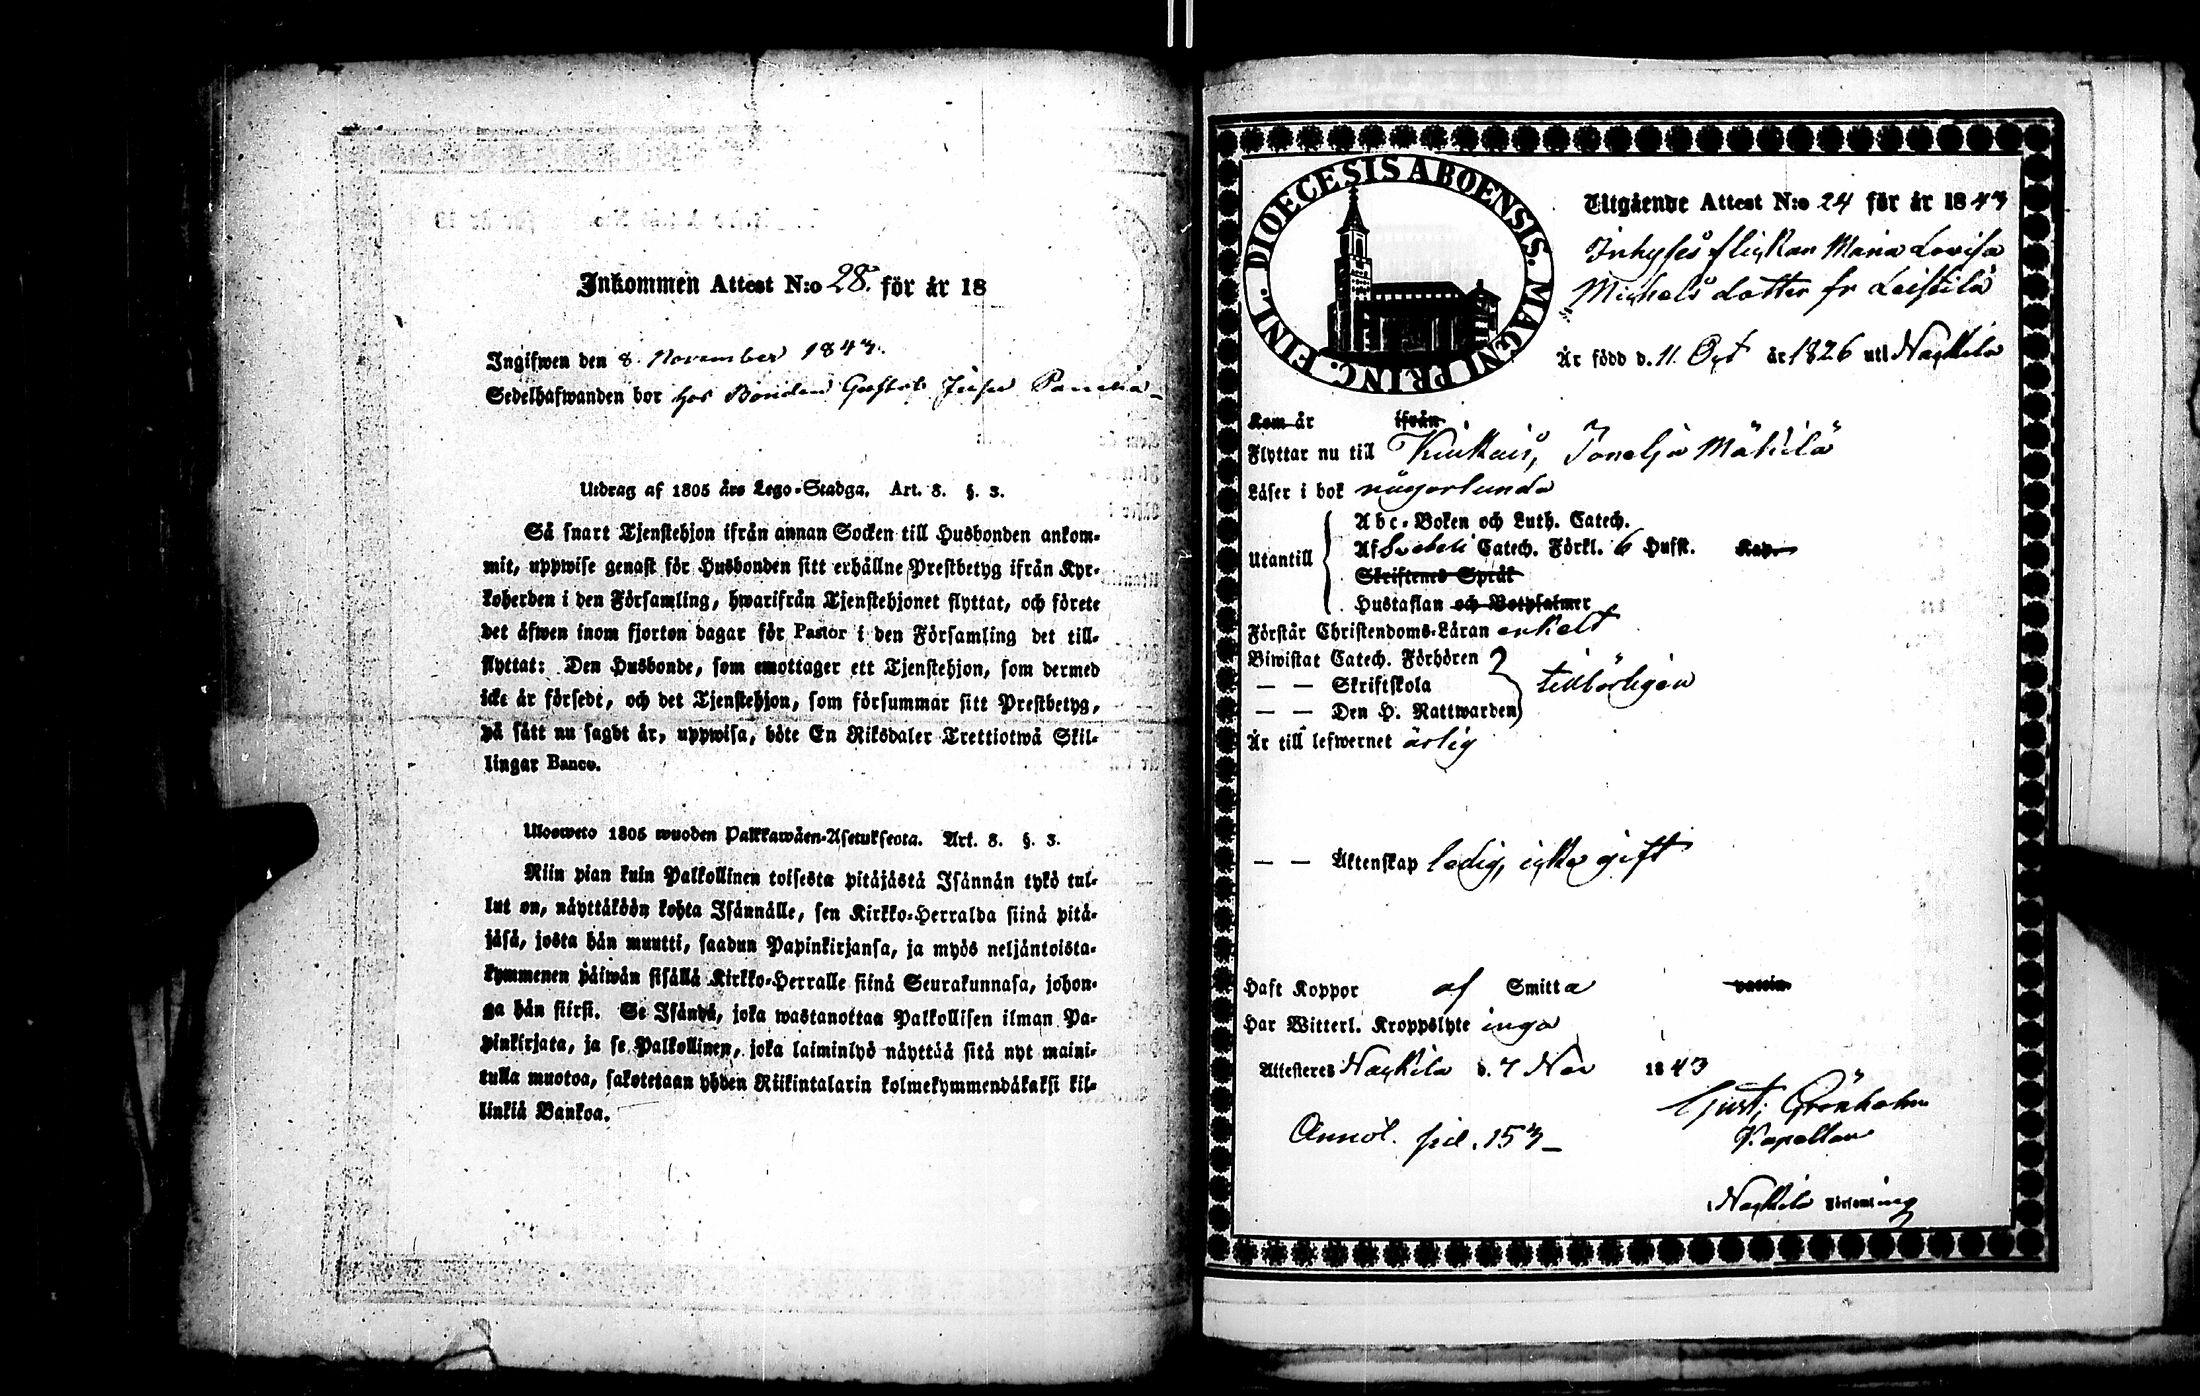 Inkommen Attest N:o 28. för år 18
Ingifwen den 8. November 1843.
Sedelhafwanden bor hos Bonden Gustaf
Utdrag af 1805 års Lego-Stadga. Art. 8. §. 3.
Så snart Tjenstehjon ifrån annan Socken till Husbonden ankom-
mit, uppwise genast för Husbonden sitt erhållne Prestbetyg ifrån Kyr-
koherden i den Församling, hwarifrån Tjenstehjonet flyttat, och förete
det äfwen inom fjorton dagar för Pastor i den Församling det till-
flyttat: Den Husbonde, som emottager ett Tjenstehjon, som dermed
icke är försedt, och det Tjenstehjon, som försummar sitt Prestbetyg,
på sätt nu sagdt är, uppwisa, böte En Riksdaler Trettiotwå Skil-
lingar Banco.
Ulosweto 1805 wuoden Palkkawäen-Asetuksesta. Art. 8. §. 3.
Niin pian kuin Palkollinen toisesta pitäjästä Isännän tykö tul-
lut on, näyttäköön kohta Isännälle, sen Kirkko-Herralda siinä pitä-
jäsä, josta hän muutti, saadun Papinkirjansa, ja myös neljäntoista-
kymmenen päiwän sisällä Kirkko-Herralle siinä Seurakunnasa, johon-
ga hän siirsi. Se Isändä, joka wastanottaa Palkollisen ilman Pa-
pinkirjata, ja se Palkollinen, joka laiminlyö näyttää sitä nyt maini-
tulla muotoa, sakotetaan yhden Riikintalarin kolmekymmendäkaksi kil-
linkiä Bankoa.
DIOECESIS ABOENSIS. MAGNI PRINC. FINL.
Utgående Attest N:o 24 för år 1843
Inhyses flickan Maria Lovisa
Michels dotter fr Leistilä
Är född d. 11 Oct år 1826 uti Nackila
Kom år ifrån
Flyttar nu till Kiukais, Mäkilä
Läser i bok någorlunda
Utantill
Abc-Boken och Luth. Catech.
Af Svebeli Catech. Förkl. 6 Hufst. Kap.
Skriftenes Språk
Hustaflan och Botpsalmer
Förstår Christendoms-Läran enkelt
Biwistat Catech. Förhören
— — Skriftskola tillbörligen
— — Den H. Nattwarden
Är till lefwernet ärlig
— — Äktenskap ledig, icke gift
Haft Koppor af Smitta vaccin.
Har Witterl. Kroppslyte inga
Attesteres Nackila d. 7 Nov 1843
Gust. Grönholm
Annot. pil. 153
Kapellan
Nackila Församling